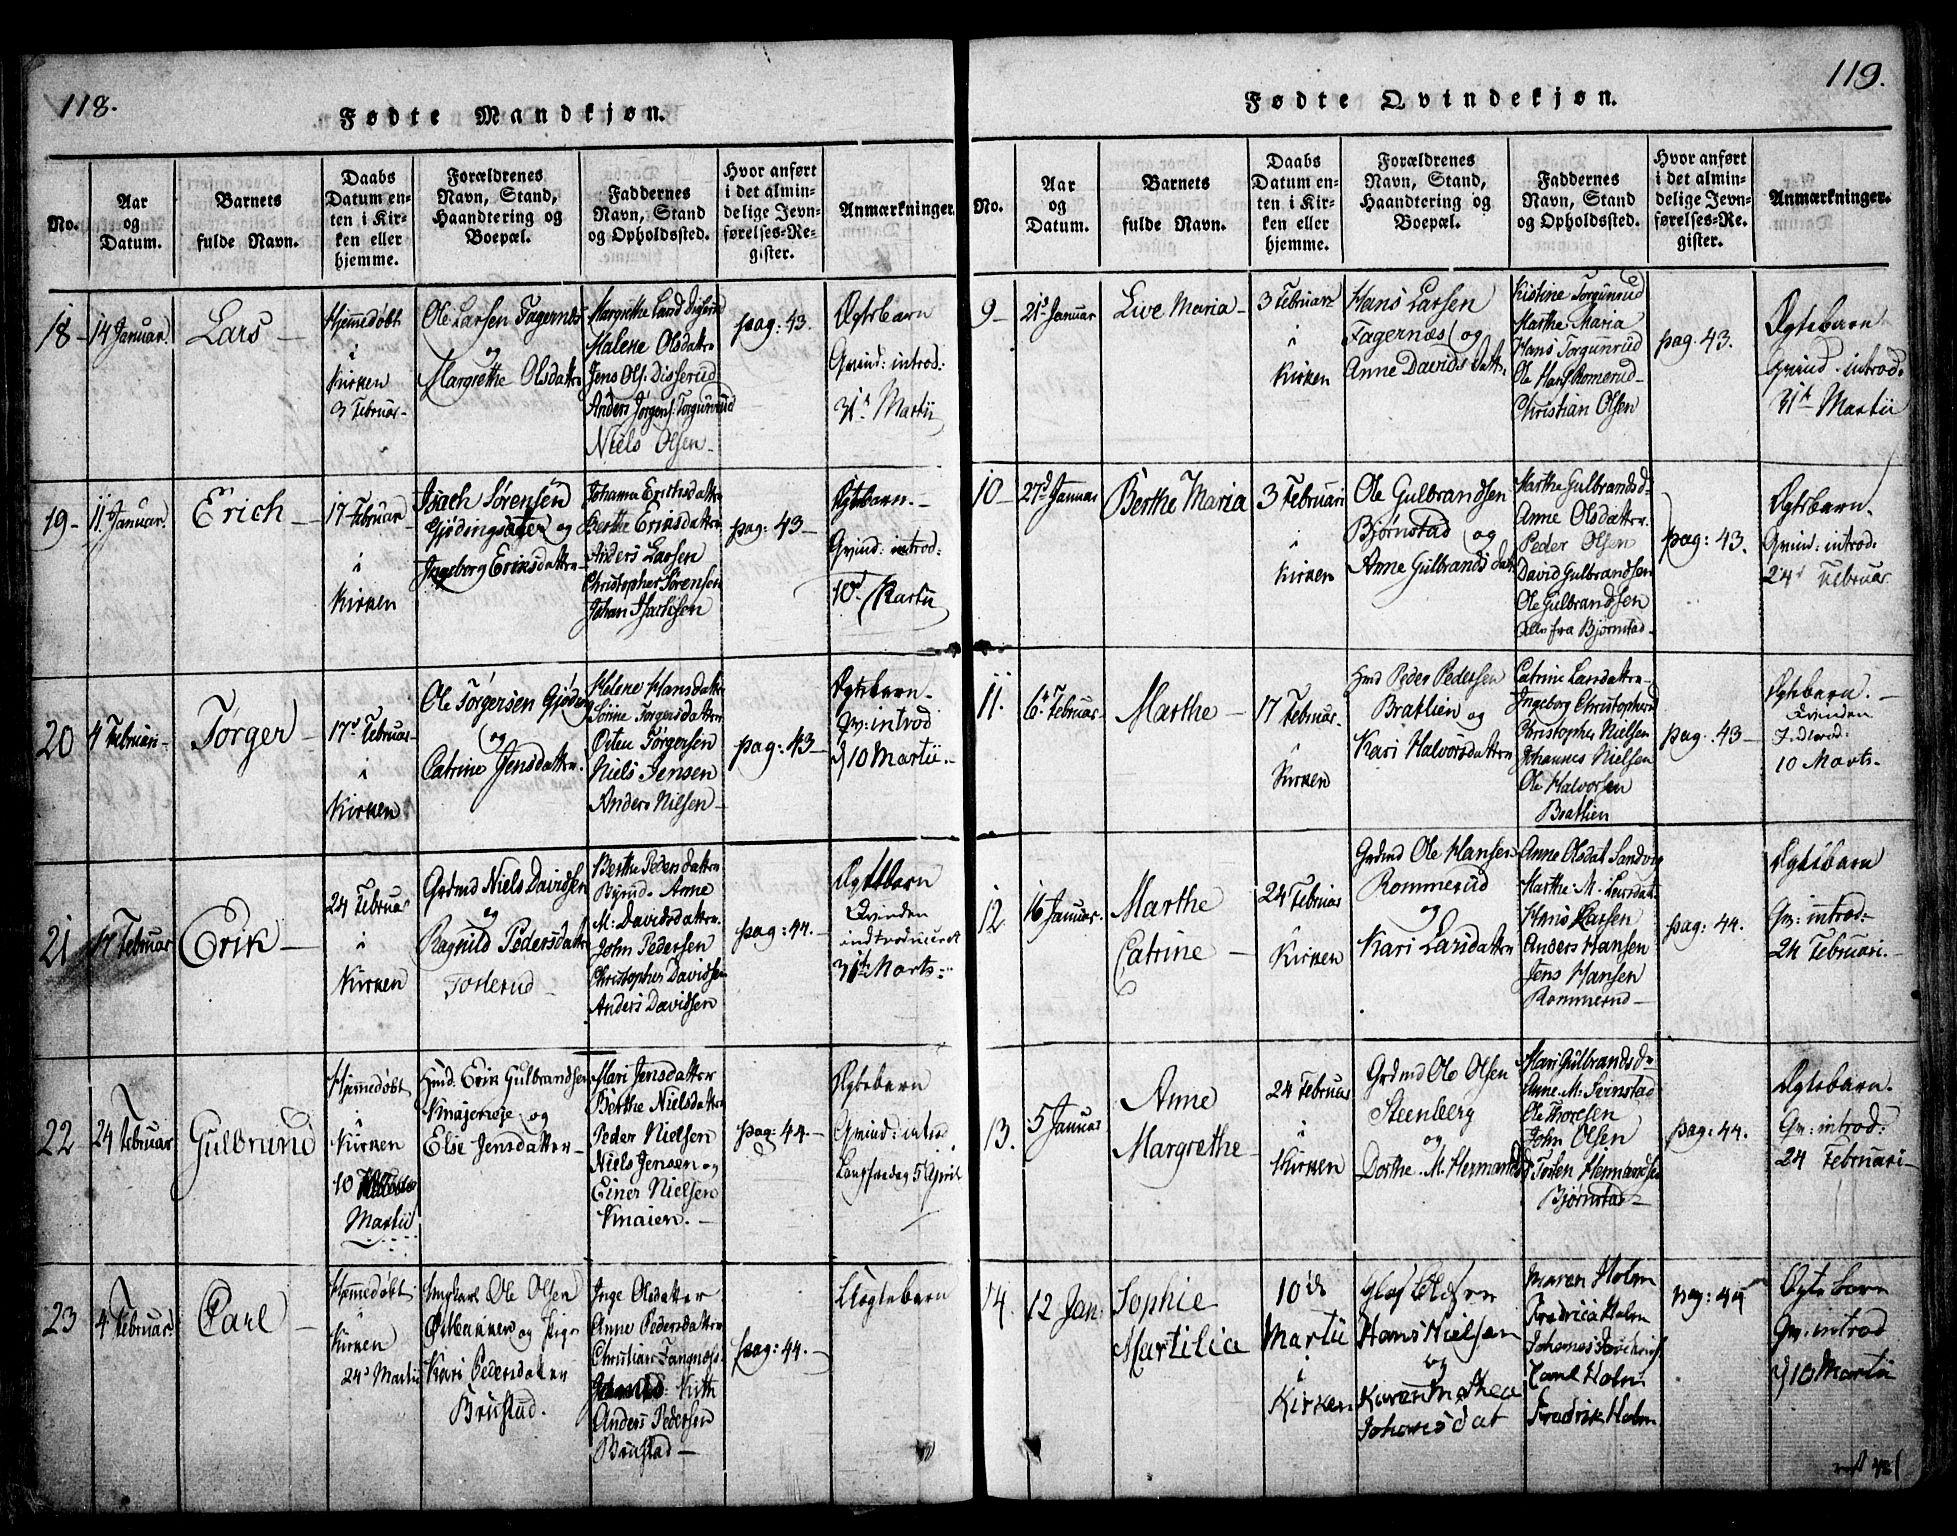 118.
Fødte Mandkjøn.
No.
Aar
og
Datum.
Barnets
fulde Navn.
Daabs
Datum en-
ten i Kir-
ken eller
hjemme.
Forældrenes
Navn, Stand,
Haandtering og
Boepæl.
Faddernes
Navn, Stand
og Opholdssted.
Hvor anført
i det almin-
delige Jevn-
førelses-Re-
gister.
Anmærkninger.
18 -
14 Januar.
Lars
Hjemmedøbt
i
Kirken
3 Februar
Ole Larsen Fagernæs
og
Margrethe Olsdatter
Malene Olsdatter
Jens Ols. Disserud
Anders Jørgens. Torgunrud
Niels Olsen
pag: 43.
Ægtebarn
Qvind: introd:
31te Martii
19 -
11 Januar.
Erich
17 Februar
i
Kirken
Isach Sørensen
Gjødingsæter og
Ingeborg Eriksdatter
Johanna Erichsdatter
Berthe Eriksdatter
Anders Larsen
Christopher Sørensen
pag: 43
Ægtebarn.
Qvind: introd:
10d Martii
20
4 Februari
Tørger
17d Februar
i
Kirken
Ole Tørgersen Gjøding
og
Catrine Jensdatter.
Helene Hansdatter
Sørine Torgersdatter
Østen Tørgersen
Niels Jensen
Anders Nilsen
pag: 43
Ægtebarn.
Qv: introd
d 10 Martii.
21
17 Februar
Erik
24 Februar
i
Kirken
Grdmd Niels Davidsen
og
Ragnild Pedersdatter
Toslerud
Berthe Pedersdatter
Byrud. Anne
M: Davidsdatter.
John Pedersen
Christopher Davidsen
Anders Davidsen
pag: 44.
Ægtebarn
Qvinden
indtroduceret
31te Marts
22
24 Februar
Gulbrand
Hjemmedøbt
i
Kirken
10
Martii
Hmd. Erik Gulbrandsen
Knajerøje og
Else Jensdatter
Mari Jensdatter
Berthe Nielsdatter
Peder Nielsen
Niels Jensen og
Einer Nielsen
Knaien.
pag: 44.
Ægtebarn
Qvind: intro
Langfredag 5 April
23
4 Februar.
Carl
Hjemmedøbt
i
Kirken
24d Martii
Ungkarl Ole Olsen
og Pige
Kari Pedersdatter
Brustad.
Inge Olsdatter
Anne Pedersdatter
Christian Fangnæss
Anders Pedersen
Brustad
pag: 44.
Uægtebarn
119.
Fødte Qvindekjøn.
No.
Aar
og
Datum.
Barnets
fulde Navn.
Daabs
Datum en-
ten i Kir-
ken eller
hjemme.
Forældrenes
Navn, Stand,
Haandtering og
Boepæl.
Faddernes
Navn, Stand
og Opholdssted.
Hvor anført
i det almin-
delige Jevn-
førelses-Re-
gister.
Anmærkninger.
9
21d Januar
Live Maria
3 Februar
i
Kirken
Hans Larsen
Fagernæs og
Anne Davids datter
Kistine Torgunrud
Marthe Maria
Hans Torgunrud
Ole Hans. Romerud
Christian Olsen
pag: 43.
Ægtebarn
Qvind. introd.
31te Martii
10
27d Januar
Berthe Maria
3 Februari
i
Kirken
Ole Gulbrandsen
Bjørnstad og
Anne Gulbrands dat
Marthe Gulbrandsd.
Anne Olsdatter.
Peder Olsen
David Gulbrandsen
Ole Gulbrandsen
Alle fra Bjørnstad
pag: 43.
Ægtebarn.
Qvind: introd:
24d Februar
11.
6te Februar
Marthe
17 Februar.
i
Kirken
Hmd Peder Pedersen
Bratlien og
Kari Halvorsdatter
Catrine Larsdatter
Ingeborg Christophersd
Christopher Nielsen
Johannes Nielsen
Ole Halvorsen
Bratlien
pag. 43
Ægtebarn.
Qvinden
Introd:
10 Marts
12
16 Januar.
Marthe
Catrine
24 Februar
i
Kirken
Grdmd Ole Hansen
Rommerud
og
Kari Larsdatter
Anne Olsdat Sandvig
Marthe M. Larsdat.
Hans Larsen
Anders Hansen
Jens Hansen
Rommerud
pag: 44.
Ægtebarn
Qv: introd:
24 Februari.
13.
5 Januar
Anne
Margrethe
24 Februar
i
Kirken
Grdmd Ole Olsen
Steenberg
og
Dorthe M. Hermandsd
Mari Gulbrandsdr
Ole Thoresen
John Olsen
Torsten Hermandsen
Bjørnstad
pag: 44.
Ægtebarn.
Qv: introd:
24 Februari
14.
12 Jan.
Sophie
Martilia
10de
Martii
i
Kirken
Hans Nielsen
og
Karen Mathea
Johansdat
Maren Holm
Fredrica Holm
Carl Holm
Fredrik Holm
pag: 44
Ægtebarn
Qv: introd
d 10 Martii